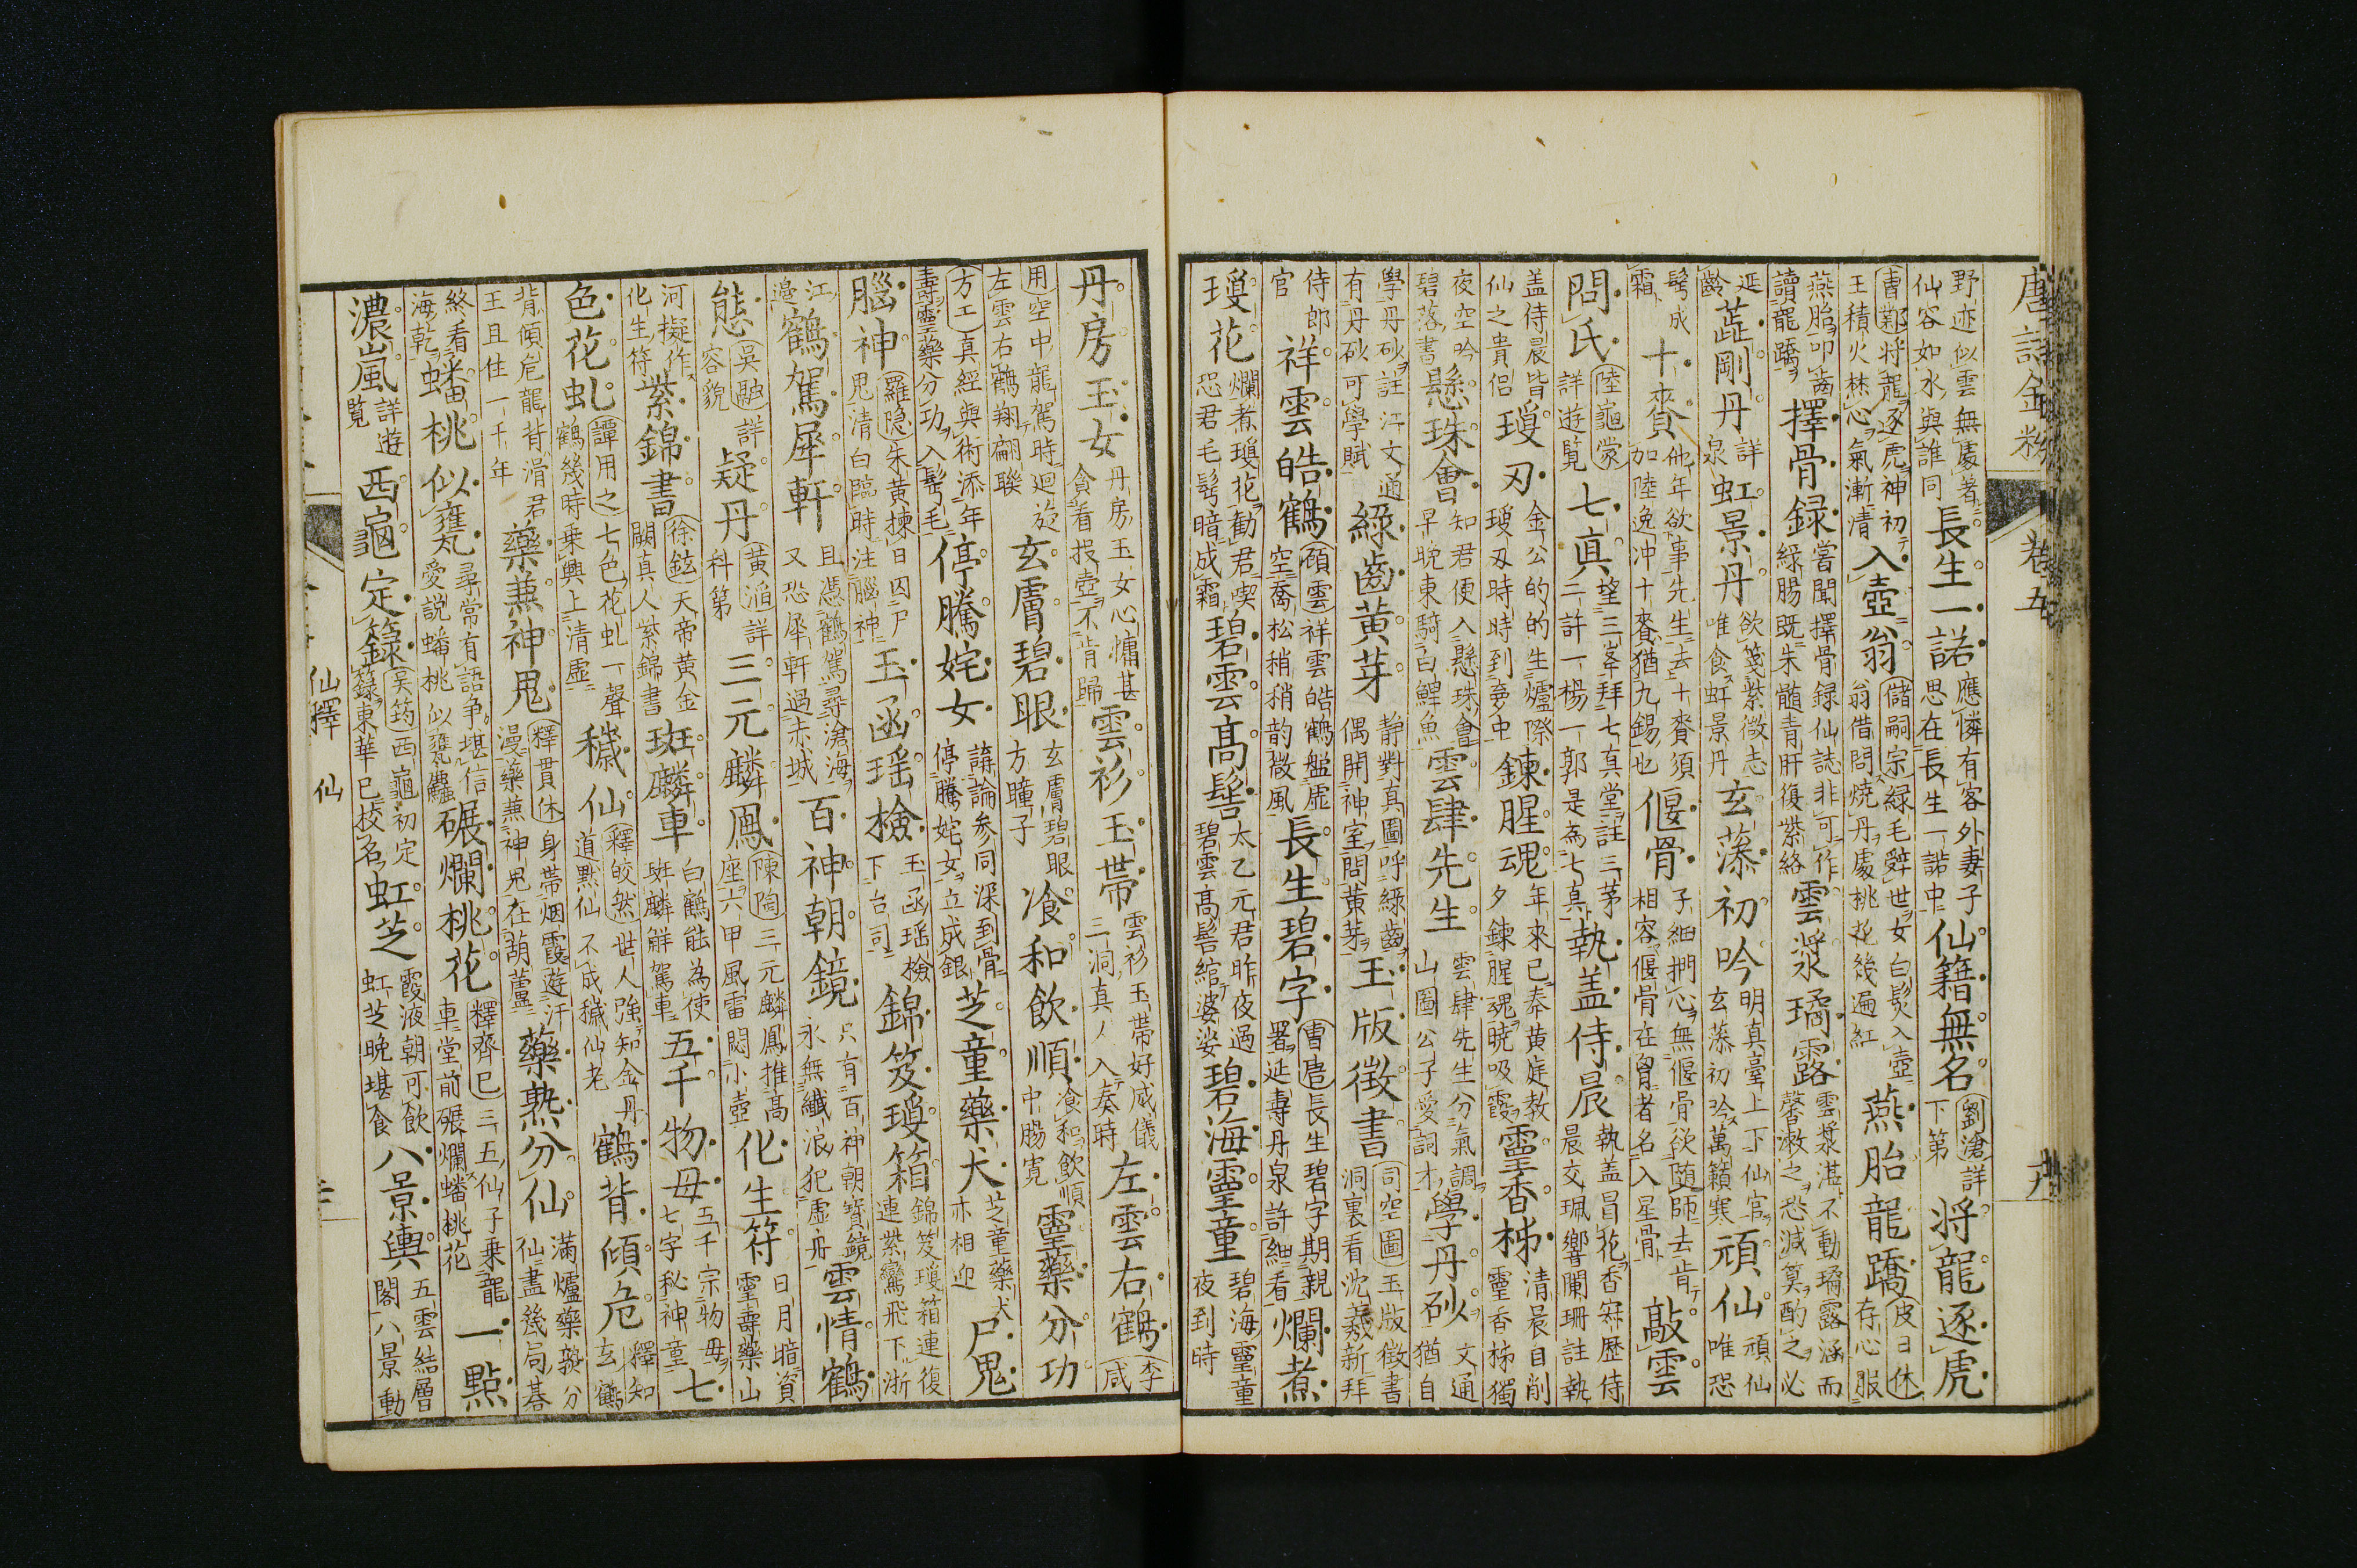 唐詩金粉 卷五
野迹似雲無處著仙容如水與誰同 長生一諾 應憐有客外妻子思在長生一諾中 仙籍無名 劉滄詳下第 將龍逐虎
曹鄴將龍逐虎神初王積火焚心氣漸清 入壺翁 儲嗣宗綠毛辭世女白髮入壺翁借問燒丹處桃花幾遍紅 燕胎龍蹻 皮日休存心服
燕胎叩齒讀龍蹻 擇骨録 嘗聞擇骨録仙誌非可作綠腸既朱髓青肝復紫絡 雲漿璚露 雲漿湛不動璚露涵而馨漱之恐減算酌之必
延齡 蓝剛丹 詳泉 虹景丹 欲箋紫微志唯食虹景丹 玄蒤初吟 明真臺上下仙官玄蒤初吟萬籟寒 頑仙 頑仙唯恐
髩成霜 十賚 他年欲事先生去十賚須加陸逸冲十賚猶九錫也 偃骨 子細捫心無偃骨欲隨師去肯相容偃骨在胷者名入星骨 敲雲
問氏 陸龜蒙詳遊覧 七真 望三峯拜七真堂註三茅二許一楊一郭是為七真 執盖侍晨 執盖冒花香寐歴侍晨交珮響闌珊註執
盖侍晨皆仙之貴侶 瓊刃 金公的的生爐際瓊刃時時到夢中 鍊腥魂 年來已奉黃庭教夕鍊腥魂曉吸霞 靈香栘 清晨自削靈香栘獨
夜空吟碧落書 懸珠會 知君便入懸珠會早晚東騎白鯉魚 雲肆先生 雲肆先生分氣調山圖公子愛詞才 學丹砂 文通猶自
學丹砂註江文通有丹砂可學賦 綠齒黃芽 静對真圖呼綠齒偶開神室問黃芽 玉版徵書 司空圖玉版徵書洞裏看沈羲新拜
侍郎官 祥雲皓鶴 顧雲祥雲皓鶴盤虚空喬松稍稍韵微風 長生碧字 曹唐長生碧字期親署延壽丹泉許細看 爛煮
瓊花 爛煮瓊花勸君喫恐君毛髩暗成霜 碧雲髙髻 太乙元君昨夜過碧雲髙髻綰婆娑 碧海靈童 碧海靈童夜到時
丹房玉女 丹房玉女心慵甚貪看投壺不肯歸 雲衫玉帯 雲衫玉帯好威儀三洞真人入奏時 左雲右鶴 李咸
用空中龍駕時廻旋左雲右鶴翔翩聨 玄膚碧眼 玄膚碧眼方瞳子 飡和飲順 飡和飲順中腸寛 靈藥分功
方干真經與術添年壽靈藥分功入髩毛 停騰姹女 講論参同深到骨停騰姹女立成銀 芝童藥犬 芝童藥犬亦相迎 尸鬼
腦神 羅隐朱黃揀日囚尸鬼清白臨時注腦神 玉函瑶檢 玉函瑶檢下台司 錦笈瓊箱 錦笈瓊箱連復連紫鸞飛下浙
江邉 鶴駕犀軒 且憑鶴駕尋滄海又恐犀軒過赤城 百神朝鏡 只有百神朝寶鏡永無纖浪犯虚舟 雲情鶴
態 吳融詳容貌 疑丹 黃滔詳科第 三元麟鳳 陳陶三元麟鳳推髙座六甲風雷閟小壺 化生符 日月暗資靈壽藥山
河擬作化生符 紫錦書 徐鉉天帝黃金闕真人紫錦書 斑麟車 白鶴能為使斑麟解駕車 五千物母 五千宗物母七字秘神童 七
色花虬 譚用之七色花虬一聲鶴幾時乗興上清虚 穢仙 釋皎然世人強知金丹道黙仙不成穢仙老 鶴背傾危 釋知玄鶴
背傾危龍背滑君王且住一千年 藥兼神鬼 釋貫休身帯烟霞遊汗漫藥兼神鬼在葫蘆 藥熟分仙 滿爐藥熟分仙盡幾局棊
終看海乾 蟠桃似甕 尋常有語争堪信愛説蟠桃似甕麤 碾爛桃花 釋齊已三五仙子乗龍車堂前碾爛蟠桃花 一㸃
濃嵐 詳遊覧 西龜定籙 吳筠西龜初定籙東華已校名 虹芝 霞液朝可飲虹芝晩堪食 八景輿 五雲結層閣八景動
仙釋 仙